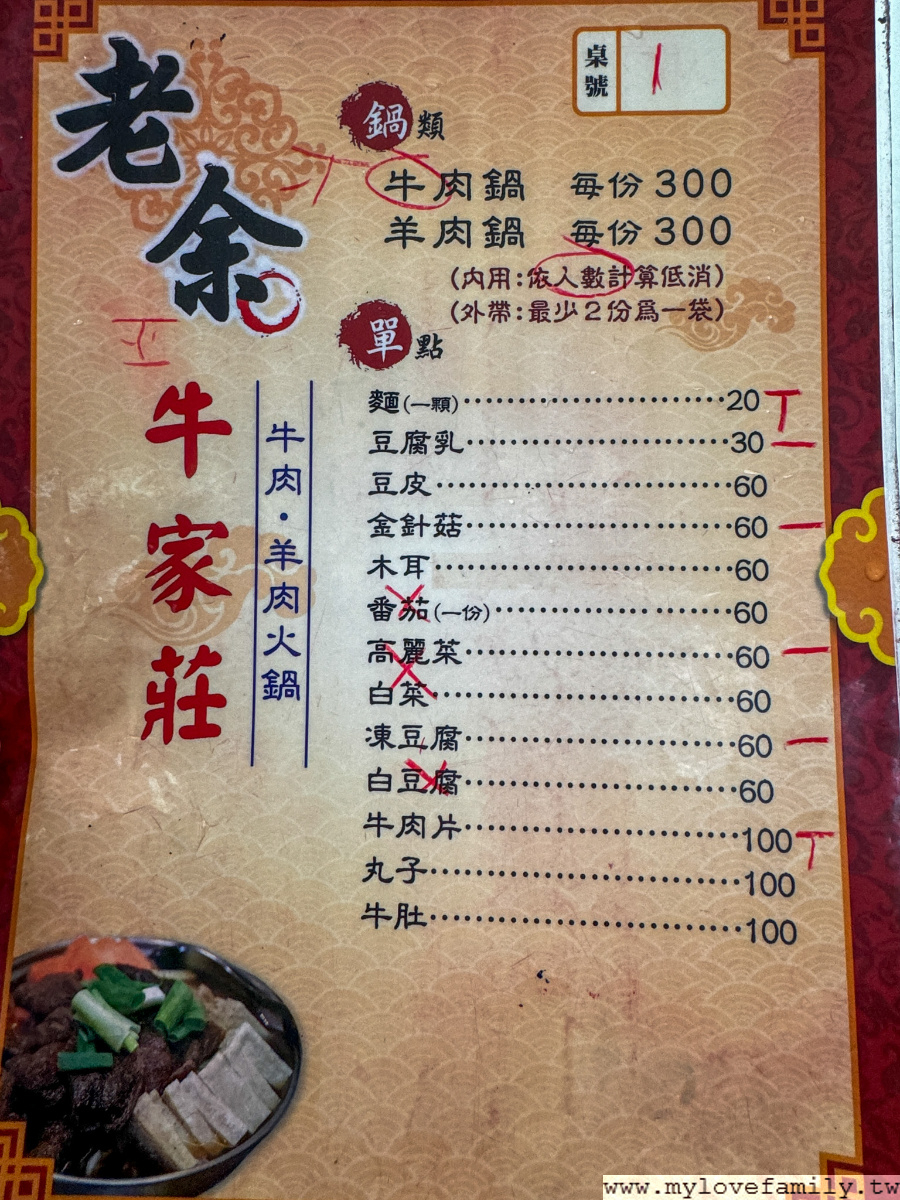 老余
牛家莊
牛肉·羊肉火鍋
桌號 1
鍋類
牛肉鍋 每份300
羊肉鍋 每份300
(內用:依人數計算低消)
(外帶:最少2份為一袋)
單點
麵(一顆)⋯⋯20
豆腐乳⋯⋯30
豆皮⋯⋯60
金針菇⋯⋯60
木耳⋯⋯60
番茄(一份)⋯⋯60
高麗菜⋯⋯60
白菜⋯⋯60
凍豆腐⋯⋯60
白豆腐⋯⋯60
牛肉片⋯⋯100
丸子⋯⋯100
牛肚⋯⋯100
www.mylovefamily.tw